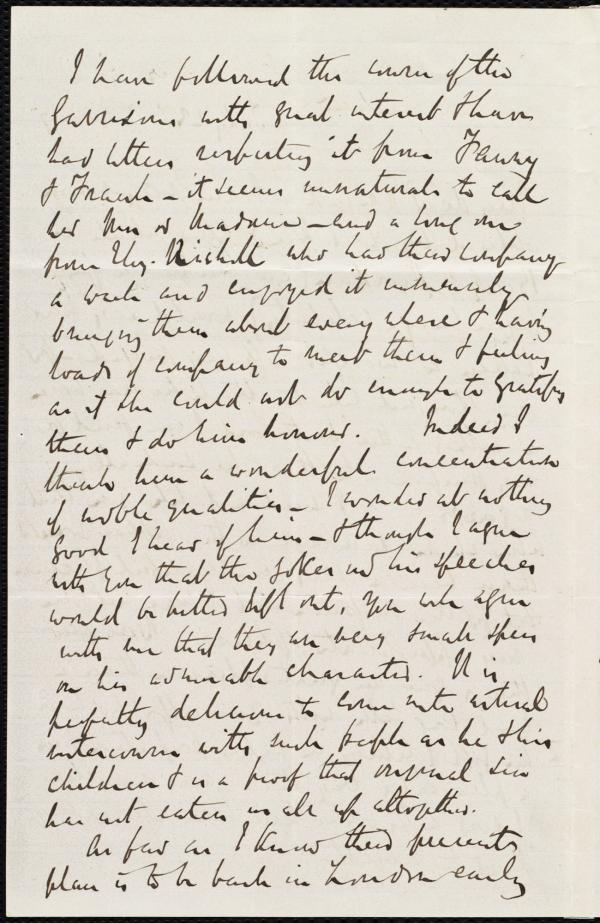 I have followed the course of the
Garrisons with great interest & have
had letters respecting it from Fanny
& Frank – it seems unnatural to call
her Mrs or Madame – and a long one
from Eliz. who had their company
a week and enjoyed it immensely,
bringing them about every where & having
loads of company to meet them & feeling
as if she could not do enough to gratify
them & do him honour. Indeed I
think him a wonderful concentration
of noble qualities – I wonder at nothing
good I hear of him – & though I agree
with you that the jokes in his speeches
would be better left out, you will agree
with me that they are very small specs
on his admirable character. It is
perfectly delicious to come into actual
intercourse with such people as he & his
children & is a proof that original sin
has not eaten us all up altogether.
As far as I know their present
plan is to be back in London early